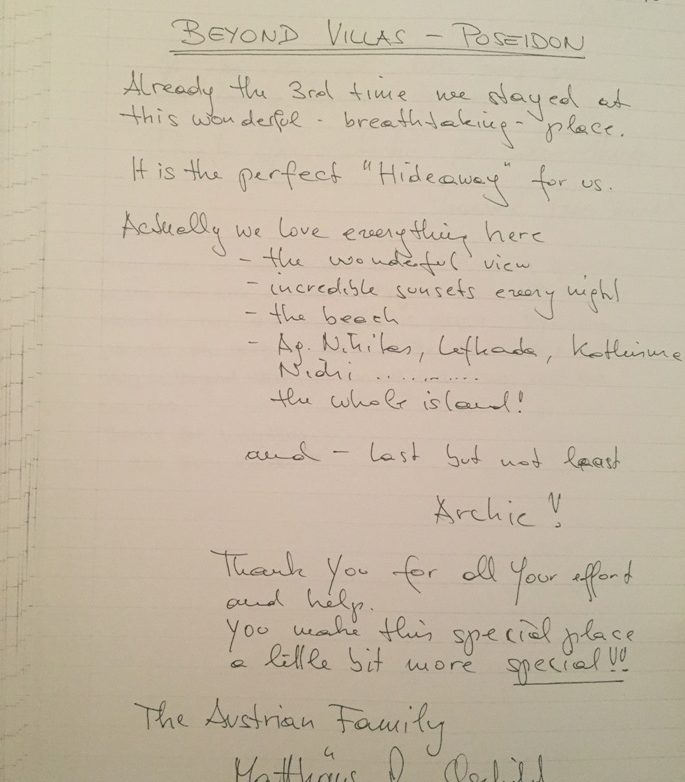 BEYOND VILLAS - POSEIDON
Already the 3rd time we stayed at
this wonderful - breathtaking - place.
It is the perfect "Hideaway" for us.
Actually we love everything here
- the wonderful view
- incredible sunsets every night
- the beach
- Ag. Nikitas, Lefkada, Kathisma
Nidri ..........
the whole island!
and - last but not least
Archie!!
Thank You for all Your effort
and help.
You make this special place
a little bit more special!!!
The Austrian Family
Matthäus